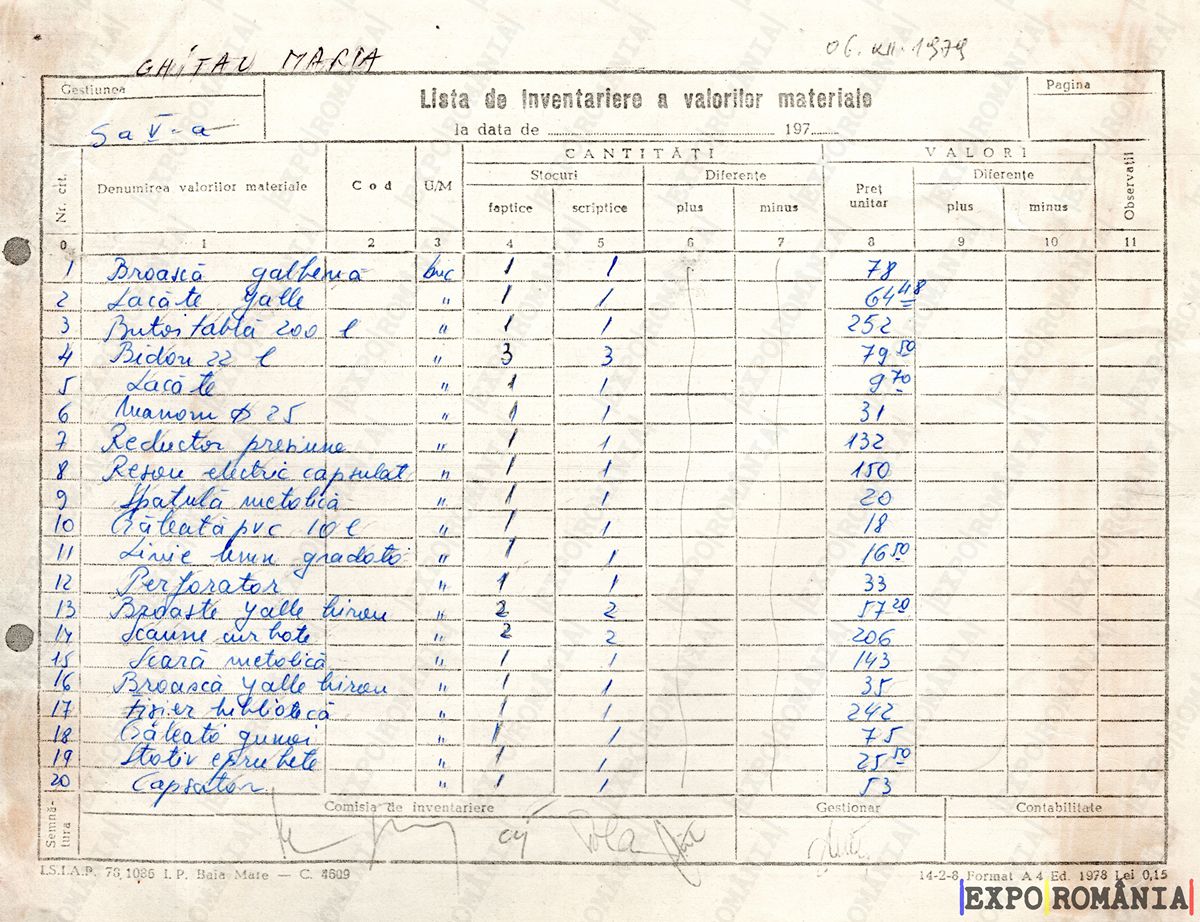 GHIȚAU MARIA
06. XII. 1979
Gestiunea
Sa V-a
Lista de inventariere a valorilor materiale
la data de 197
Pagina
Nr. crt.
Denumirea valorilor materiale
Cod
U/M
CANTITĂȚI
VALORI
Observații
Stocuri
Diferențe
Preț unitar
Diferențe
faptice scriptice plus minus plus minus
0 1 2 3 4 5 6 7 8 9 10 11
1 Broască galbenă buc 1 1 78
2 Lacăte yalle " 1 1 64 48
3 Butoi tablă 200 l " 1 1 252
4 Bidon 22 l " 3 3 79 50
5 Lacăte " 1 1 9 70
6 Manom Ø 25 " 1 1 31
7 Reductor presiune " 1 1 132
8 Resou electric capsulat " 1 1 150
9 Spatulă metolică " 1 1 20
10 Găleată pvc 10 l " 1 1 18
11 Linie lemn gradată " 1 1 16 50
12 Perforator " 1 1 33
13 Broaste yalle birou " 2 2 57 20
14 Scaune curbate " 2 2 206
15 Scară metolică " 1 1 143
16 Broască yalle birou " 1 1 35
17 Fisier bibliotecă " 1 1 242
18 Găleată gunoi " 1 1 75
19 Stativ eprubete " 1 1 25 50
20 Capsator " 1 1 53
Semnătura
Comisia de inventariere
Gestionar
Contabilitate
I.S.I.A.P. 78 1086 I. P. Baia Mare — C. 4609
14-2-8 Format A 4 Ed. 1978 Lei 0,15
EXPO ROMÂNIA